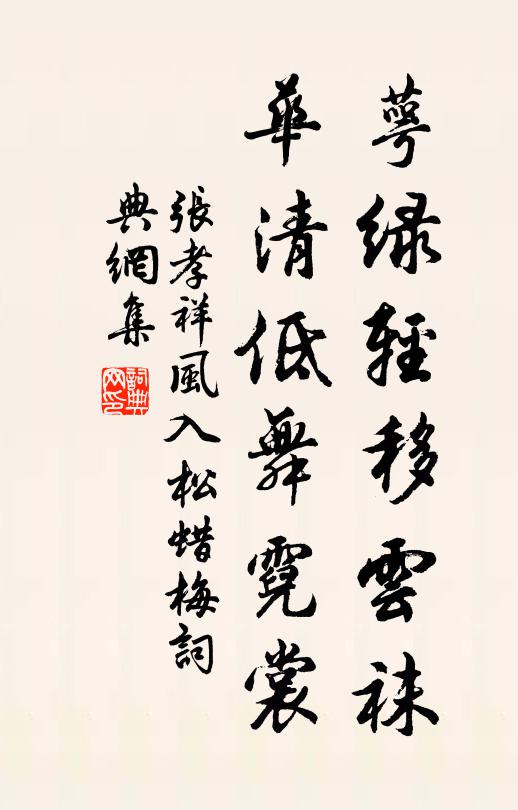 萼绿輕移雲袜
華清低舞霓裳
張孝祥風入松蜡梅詞
典網集
詞典網印